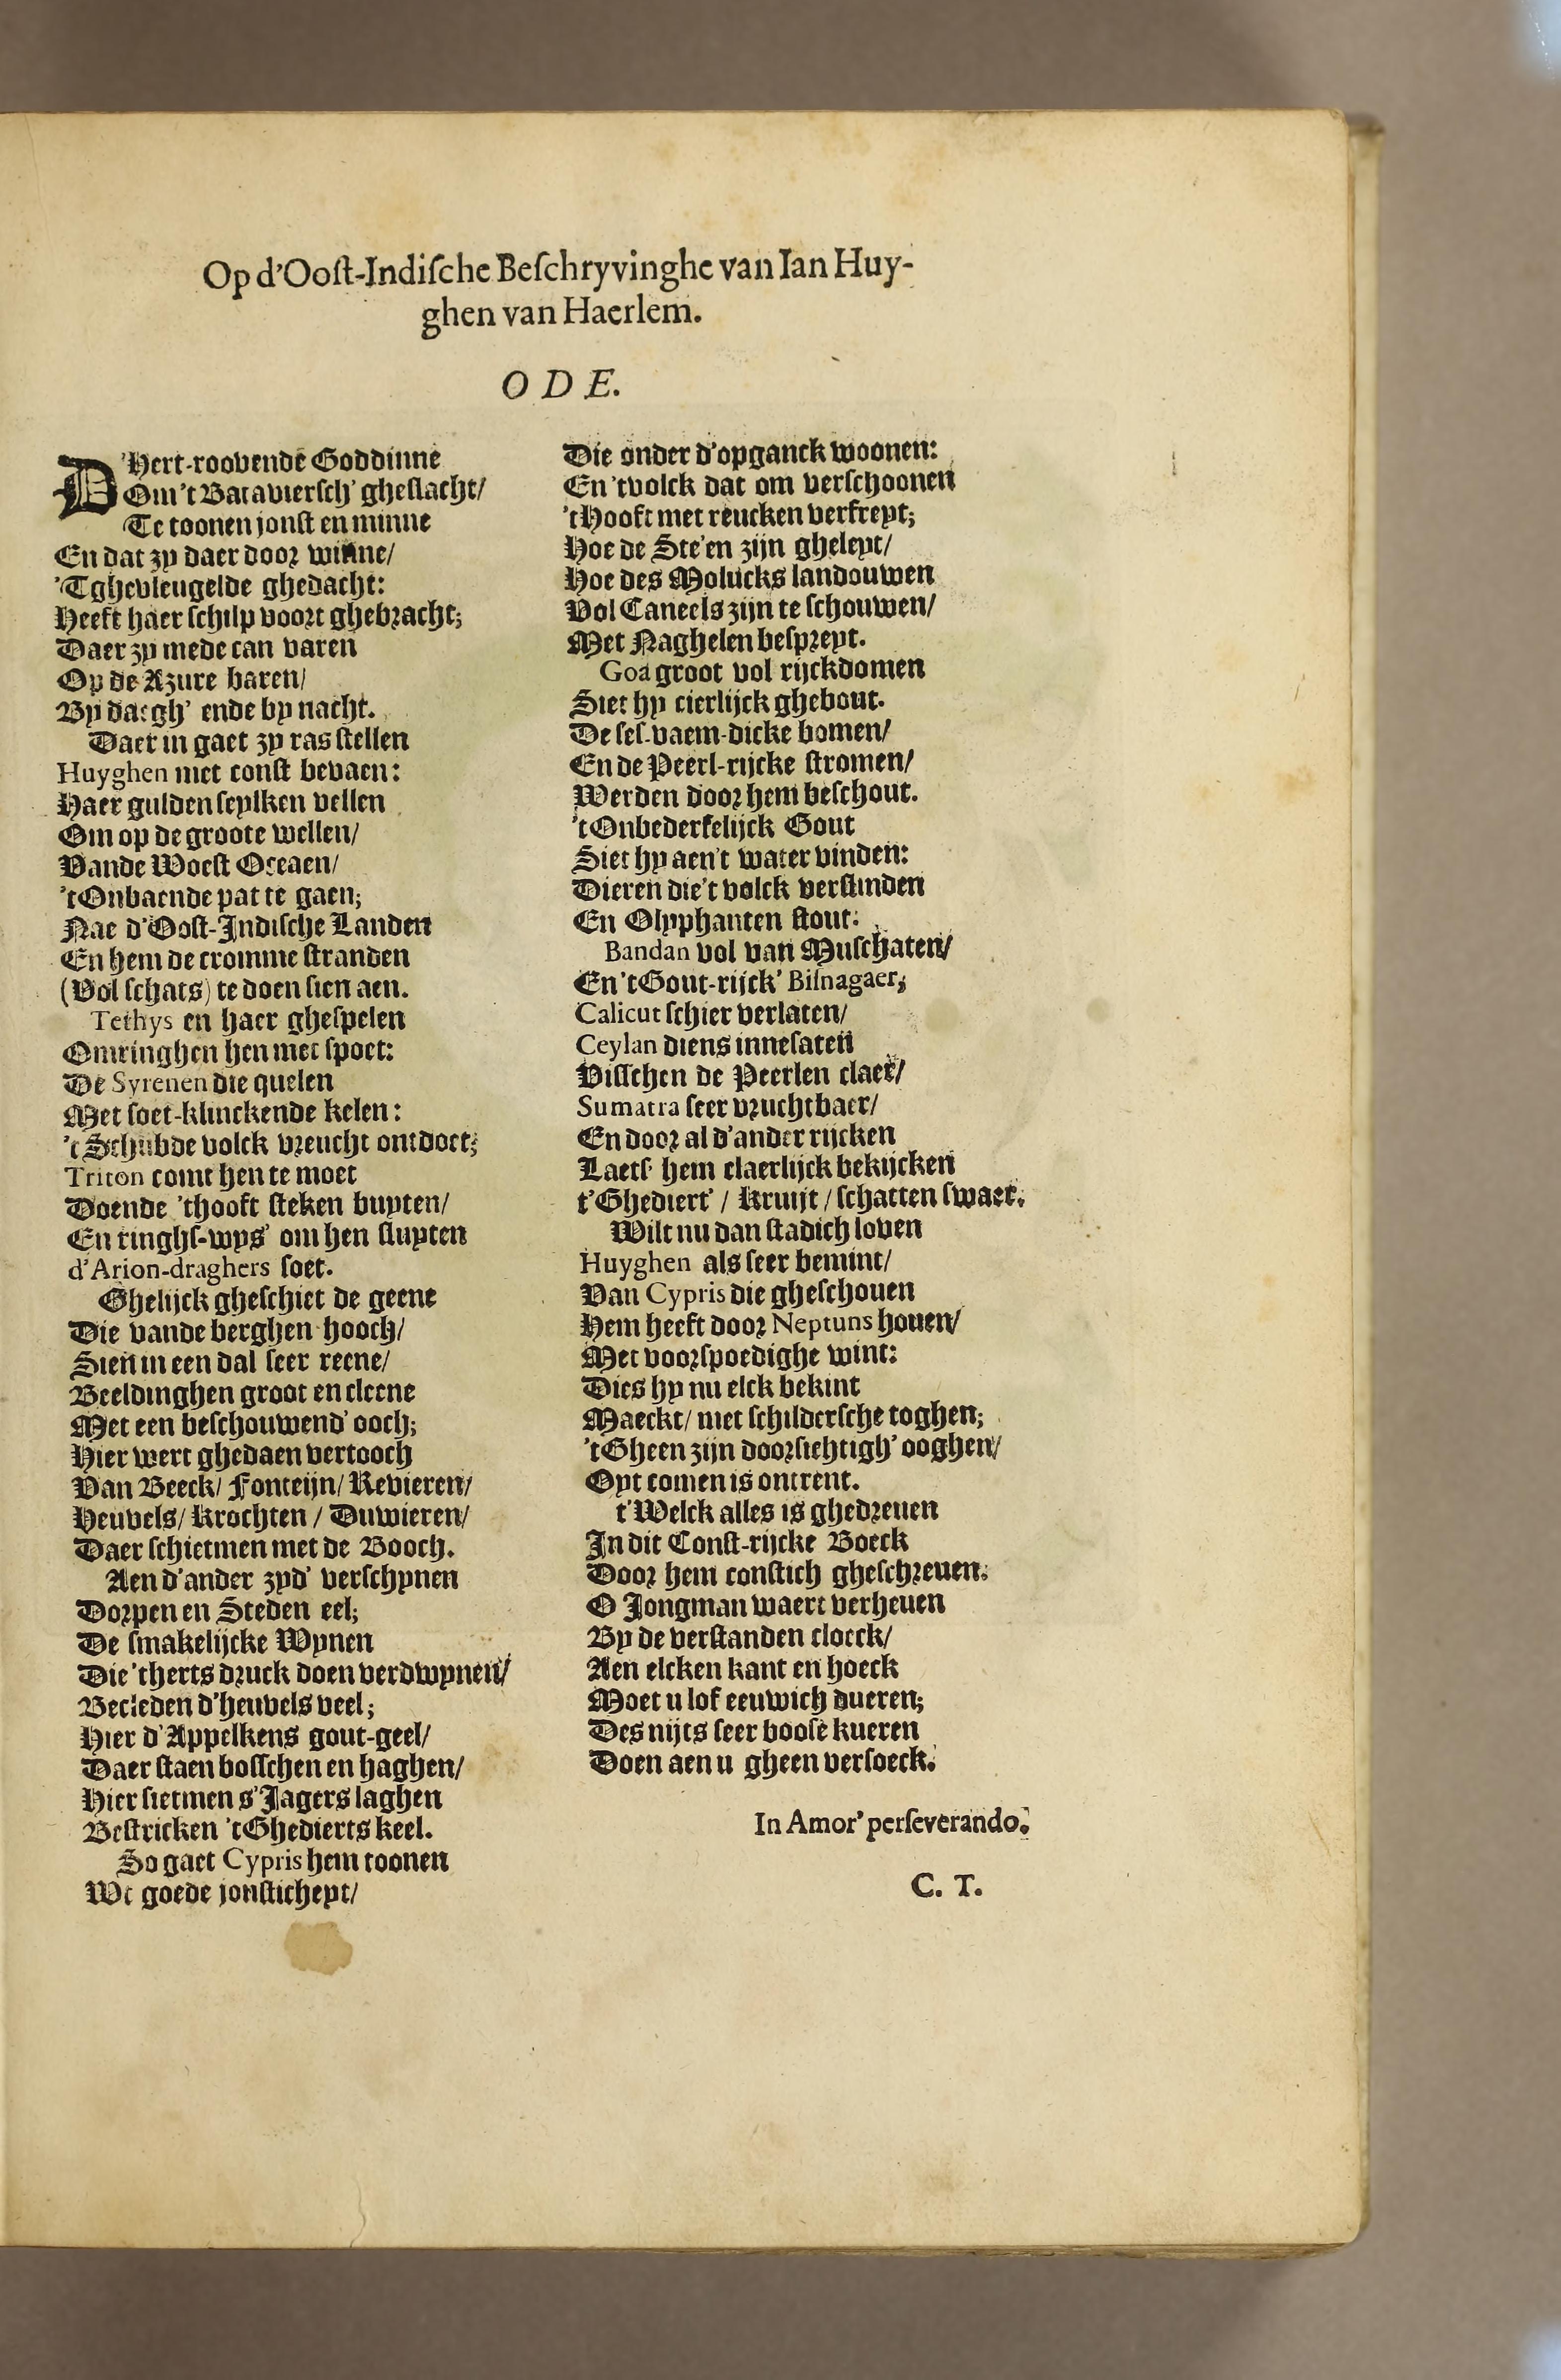 Op d'Ooſt-Indiſche Beſchryvinghe van Ian Huy-
ghen van Haerlem.
ODE.
D'Hert-roovende Goddinne
Om 't Batavierſch' gheſlacht/
Te toonen jonſt en minne
En dat zy daer door winne/
'Tghevleugelde ghedacht:
Heeft haer ſchilp voort ghebracht;
Daer zy mede can varen
Op de Azure baren/
By daegh' ende by nacht.
Daer in gaet zy ras ſtellen
Huyghen met conſt bevaen:
Haer gulden ſeylken vellen
Om op de groote wellen/
Vande Woeſt Oceaen/
't Onbaende pat te gaen;
Nae d'Ooſt-Indiſche Landen
En hem de cromme ſtranden
(Vol ſchats) te doen ſien aen.
Tethys en haer gheſpelen
Omringhen hen met ſpoet:
De Syrenen die quelen
Met ſoet-klinckende kelen:
't Schubde volck vreucht ontdoet;
Triton comt hen te moet
Doende 'thooft ſteken buyten/
En ringhſ-wys' om hen ſluyten
d'Arion-draghers ſoet.
Ghelijck gheſchiet de geene
Die vande berghen hooch/
Sien in een dal ſeer reene/
Beeldinghen groot en cleene
Met een beſchouwend' ooch;
Hier wert ghedaen vertooch
Van Beeck/ Fonteijn/ Revieren/
Heuvels/ Krochten / Duwieren/
Daer ſchietmen met de Booch.
Aen d'ander zyd' verſchynen
Dorpen en Steden eel;
De ſmakelijcke Wynen
Die 'therts druck doen verdwynen/
Becleden d'heuvels veel;
Hier d'Appelkens gout-geel/
Daer ſtaen boſſchen en haghen/
Hier ſietmen s'Jagers laghen
Beſtricken 't Ghedierts keel.
So gaet Cypris hem toonen
Wt goede jonſticheyt/
Die onder d'opganck woonen:
En 'tvolck dat om verſchoonen
't Hooft met reucken verfreyt;
Hoe de Ste'en zijn gheleyt/
Hoe des Molucks landouwen
Vol Caneels zijn te ſchouwen/
Met Naghelen beſpreyt.
Goa groot vol rijckdomen
Siet hy cierlijck ghebout.
De ſeſ-vaem-dicke bomen/
En de Peerl-rijcke ſtromen/
Werden door hem beſchout.
't Onbederfelijck Gout
Siet hy aen't water vinden:
Dieren die't volck verſlinden
En Olyphanten ſtout:
Bandan vol van Muſchaten/
En 't Gout-rijck' Biſnagaer;
Calicut ſchier verlaten/
Ceylan diens inneſaten
Viſſchen de Peerlen claer/
Sumatra ſeer vruchtbaer/
En door al d'ander rijcken
Laetſ hem claerlijck bekijcken
t'Ghediert' / Kruijt / ſchatten ſwaer.
Wilt nu dan ſtadich loven
Huyghen als ſeer bemint/
Van Cypris die gheſchoven
Hem heeft door Neptuns hoven/
Met voorſpoedighe wint:
Dies hy nu elck bekint
Maeckt/ met ſchilderſche toghen;
't Gheen zijn doorſichtigh' ooghen/
Opt comen is ontrent.
t'Welck alles is ghedreuen
In dit Conſt-rijcke Boeck
Door hem conſtich gheſchreuen.
O Jongman waert verheuen
By de verſtanden cloeck/
Aen elcken kant en hoeck
Moet u lof eeuwich dueren;
Des nijts ſeer booſe kueren
Doen aen u gheen verſoeck.
In Amor' perſeverando.
C. T.